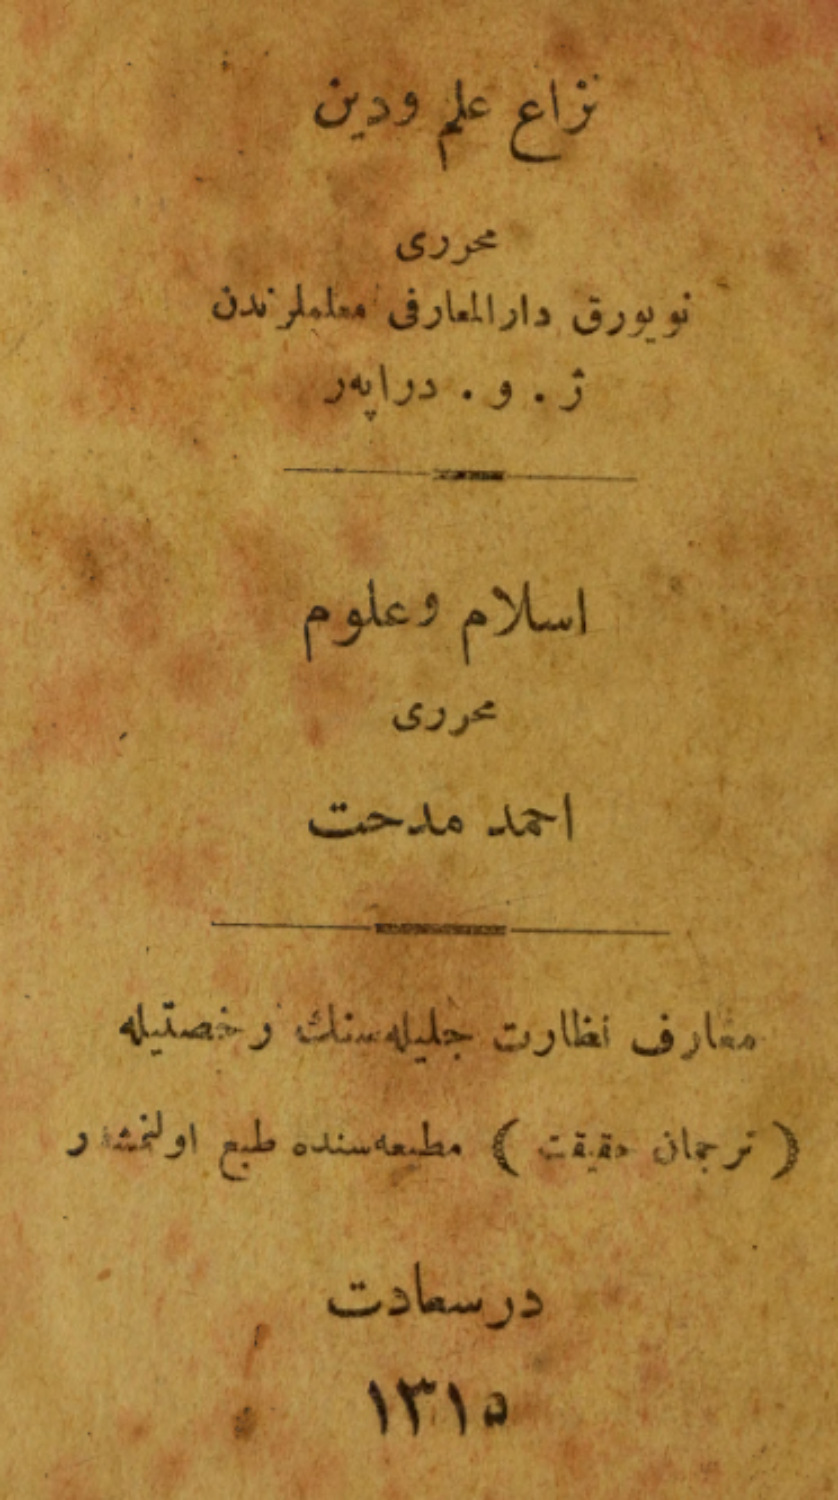 نزاع علم ودين
محررى
نويورق دار المعارفى معلملرندن
ژ . و . دراپەر
اسلام وعلوم
محررى
احمد مدحت
معارف نظارت جليله‌سنك رخصتيله
( ترجمان حقيقت ) مطبعه‌سنده طبع اولنمشدر
درسعادت
١٣١٥